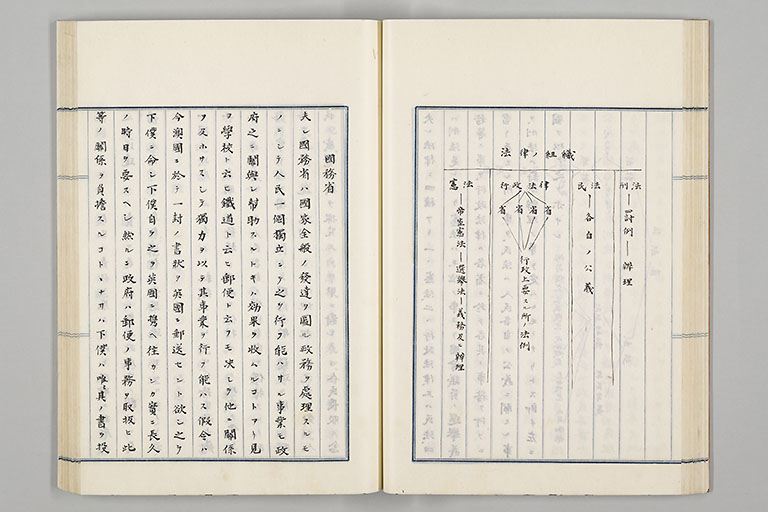 法律ノ組織
刑法―罰例―辨理
民法―各自ノ公義
行政法律
省 省 省 省
行政上要スル所ノ法例
憲法
帝室憲法―選舉法―義務及ヒ辨理
國務省
夫レ國務省ハ國家全般ノ發達ヲ圖ル政務ヲ處理スルモ
ノニシテ人民一個獨立シテ之ヲ行フ能ハサル事業モ政
府之ニ關與シ幇助スルトキハ効果ヲ收ムルコトアリ見
ヨ學校ト云ヒ鐵道ト云ヒ郵便ト云フモ決シテ他ニ關係
ヲ及ホサスシテ獨力ヲ以テ其事業ヲ行フ能ハス假令ハ
今澳國ニ於テ一封ノ書狀ヲ英國ニ郵送セント欲シ之ヲ
下僕ニ命シ下僕自ラ之ヲ英國ニ齎ヘ往カンカ實ニ長久
ノ時日ヲ要スヘシ然ルニ政府ハ郵便ノ事務ヲ取扱ヒ此
等ノ關係ヲ負擔スルコトナレハ下僕ハ唯其ノ書ヲ投